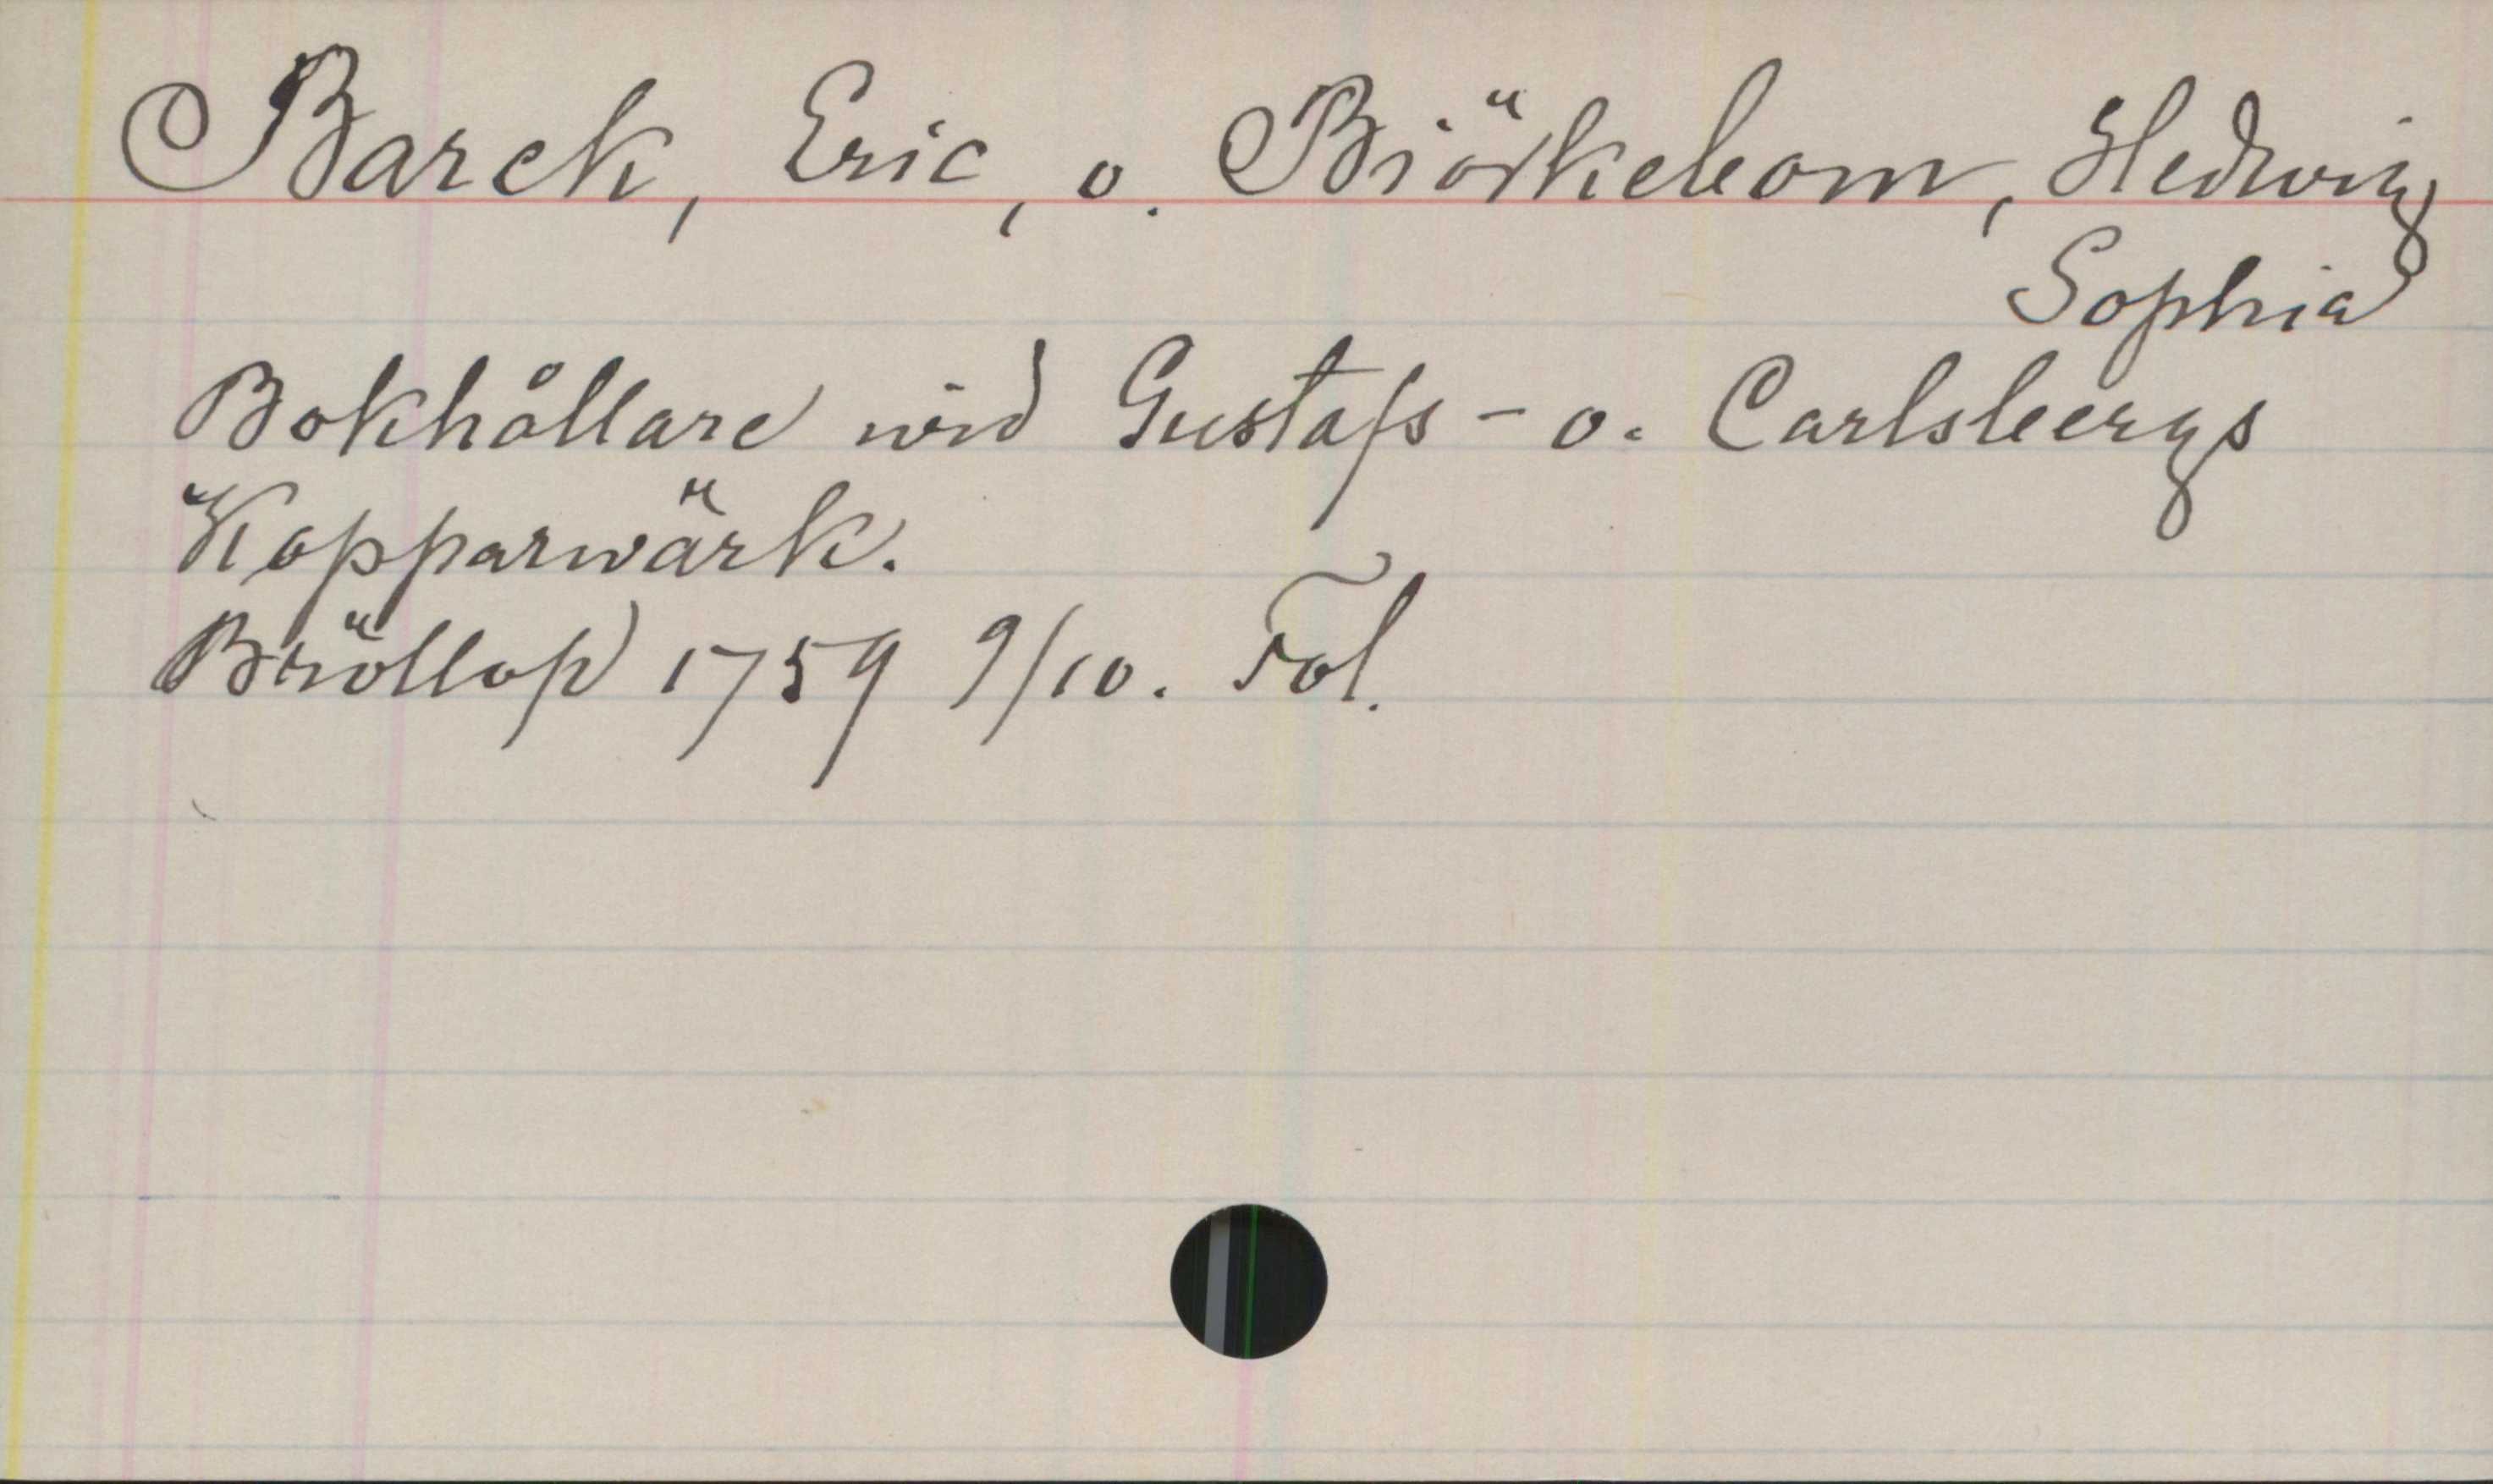 Barck, Eric, o. Biörkebom, Hedwig
Sophia
Bokhållare wid Gustafs- o. Carlsbergs
Kopparwärk.
Bröllop 1759 9/10. Fol.